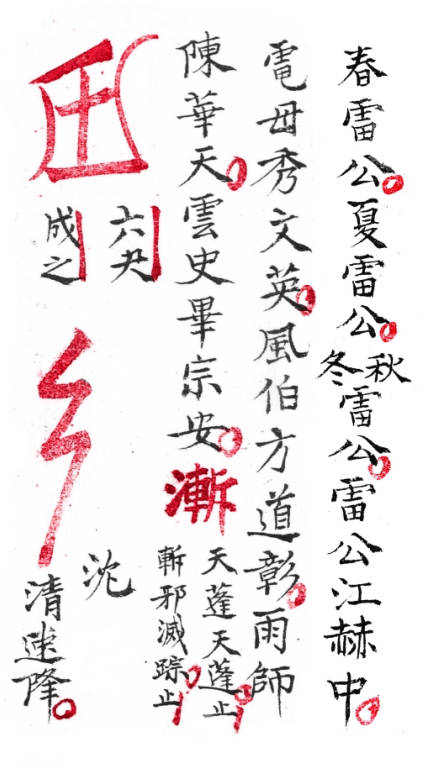 春雷公夏雷公秋冬雷公雷公江赫中
電母秀文英風伯方道彰雨師
陳華天雲史畢宗安漸
天蓬天蓬止
斬邪滅踪止
六
成之
沈
清速降